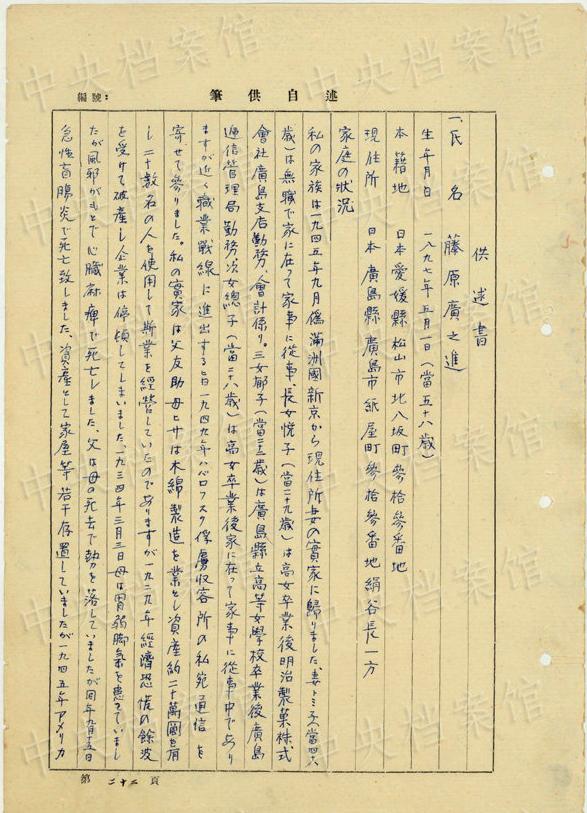 述自供筆
編號：
供述書
一、氏名　藤原廣之進
生年月日　一八九七年五月一日（當五十八歳）
本籍地　日本愛媛縣松山市北八坂町參拾參番地
現住所　日本廣島縣廣島市紙屋町參拾參番地絹谷長一方
家庭の状況
私の家族は一九四五年九月僞滿洲國新京から現住所妻の實家に歸りました、妻トミ子（當四八
歳）は無職で家に在って家事に從事、長女悦子（當二十九歳）は高女卒業後明治製菓株式
會社廣島支店勤務、會計係り。三女郁子（當二三歳）は廣島縣立高等女學校卒業後廣島
逓信管理局勤務、次女總子（當二十八歳）は高女卒業後家に在って家事に從事中であり
ますが近く職業戰線に進出する旨一九四九年ハバロフスク俘虜収容所の私宛通信を
寄せて參りました。私の實家は父友助母ヒサは木綿製造を業とし資産約二十萬圓を有
し二十數名の人を使用して斯業を經營していたのでありますが一九二九年經濟恐慌の餘波
を受けて破産し企業は停頓してしまいました、一九三四年三月三日母は胃弱脚氣を患っていまし
たが風邪がもとで心臓麻痺で死亡しました、父は母の死去で勢を落していましたが同年九月十五日
急性盲腸炎で死亡致しました、資産として家屋等若干存置していましたが一九四五年アメリカ
第二十二頁
中央档案馆